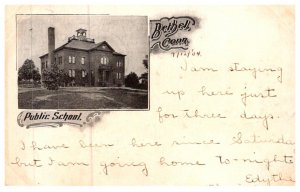 Bethel,
Conn.
9/12/04
I am staying
up here just
for three days.
Public School.
I have been here since Saturday
but I am going home to-night
Edythe